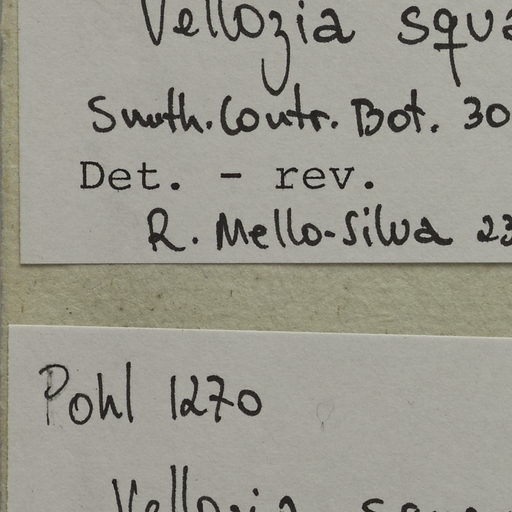 Vellozia squa
Smith. Contr. Bot. 30
Det. - rev.
R. Mello-Silva 23
Pohl 1270
Vellozia squa